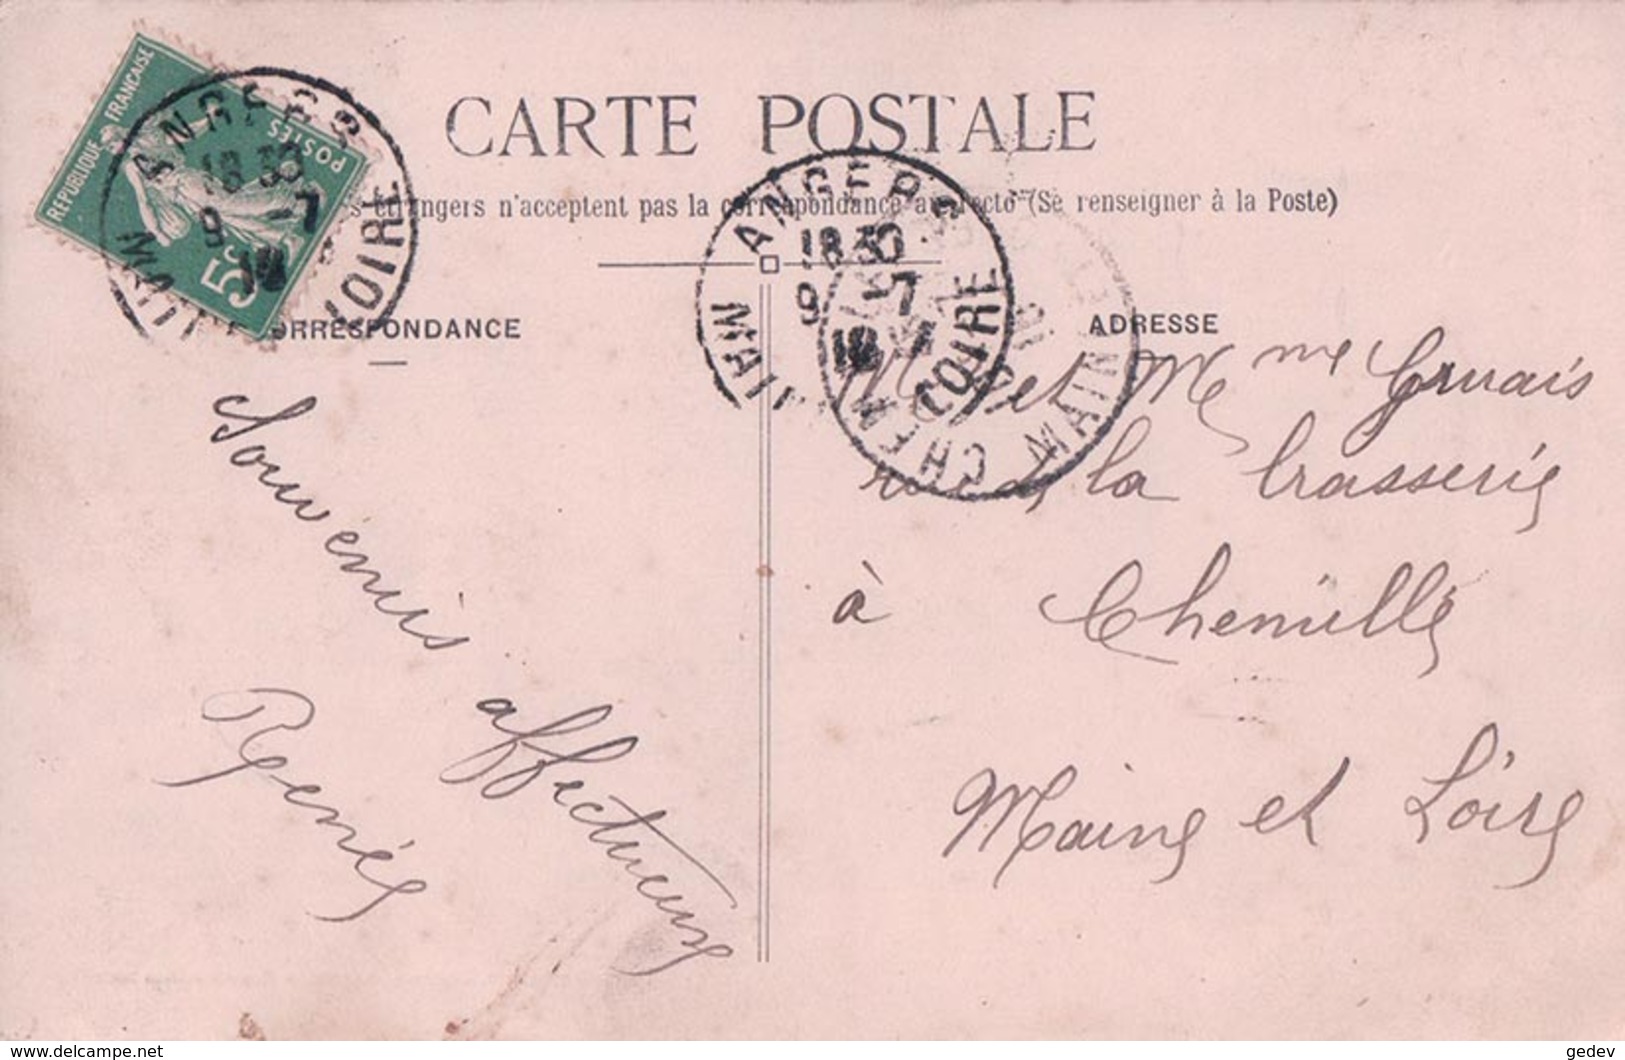 CARTE POSTALE
n'acceptent pas la correspondance au recto (Se renseigner à la Poste)
CORRESPONDANCE
ADRESSE
RÉPUBLIQUE FRANÇAISE
POSTES
5c
ANGERS
18 30
9 -7
10
MAINE
LOIRE
ANGERS
18 30
9 -7
10
MAINE
LOIRE
CHEM
MAINE
Souvenirs
affectueux
René
M et Mme
rue de la brasserie
à Chemillé
Maine et Loire
www.delcampe.net
gedev